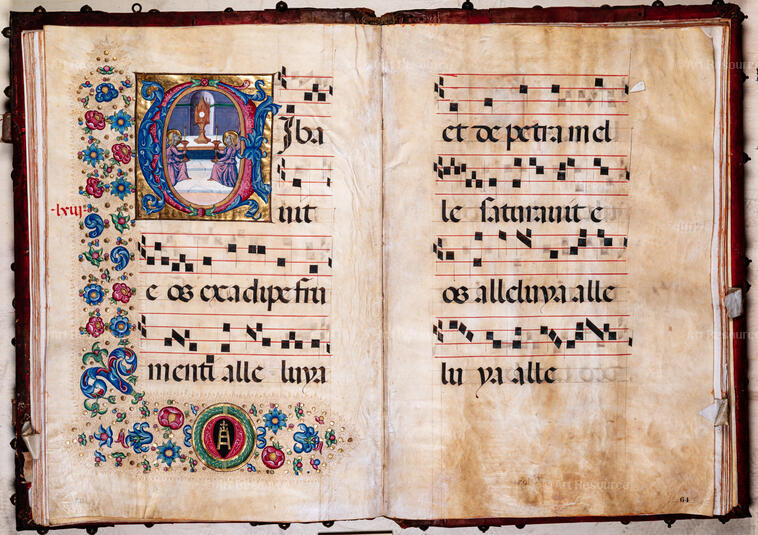 -lxiij-
CIba
uit
e os ex adipe fru
menti alle luya
et de petra mel
le saturauit e
os alleluya alle
lu ya alle
64
Art Resource